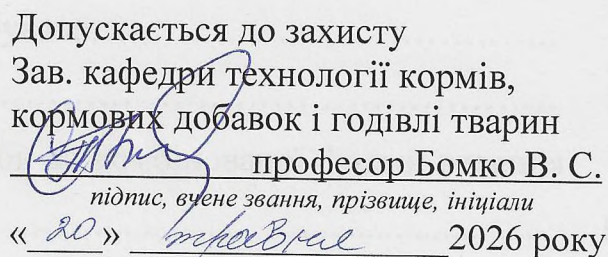 Допускається до захисту
Зав. кафедри технології кормів,
кормових добавок і годівлі тварин
професор Бомко В. С.
підпис, вчене звання, прізвище, ініціали
«20» травня 2026 року